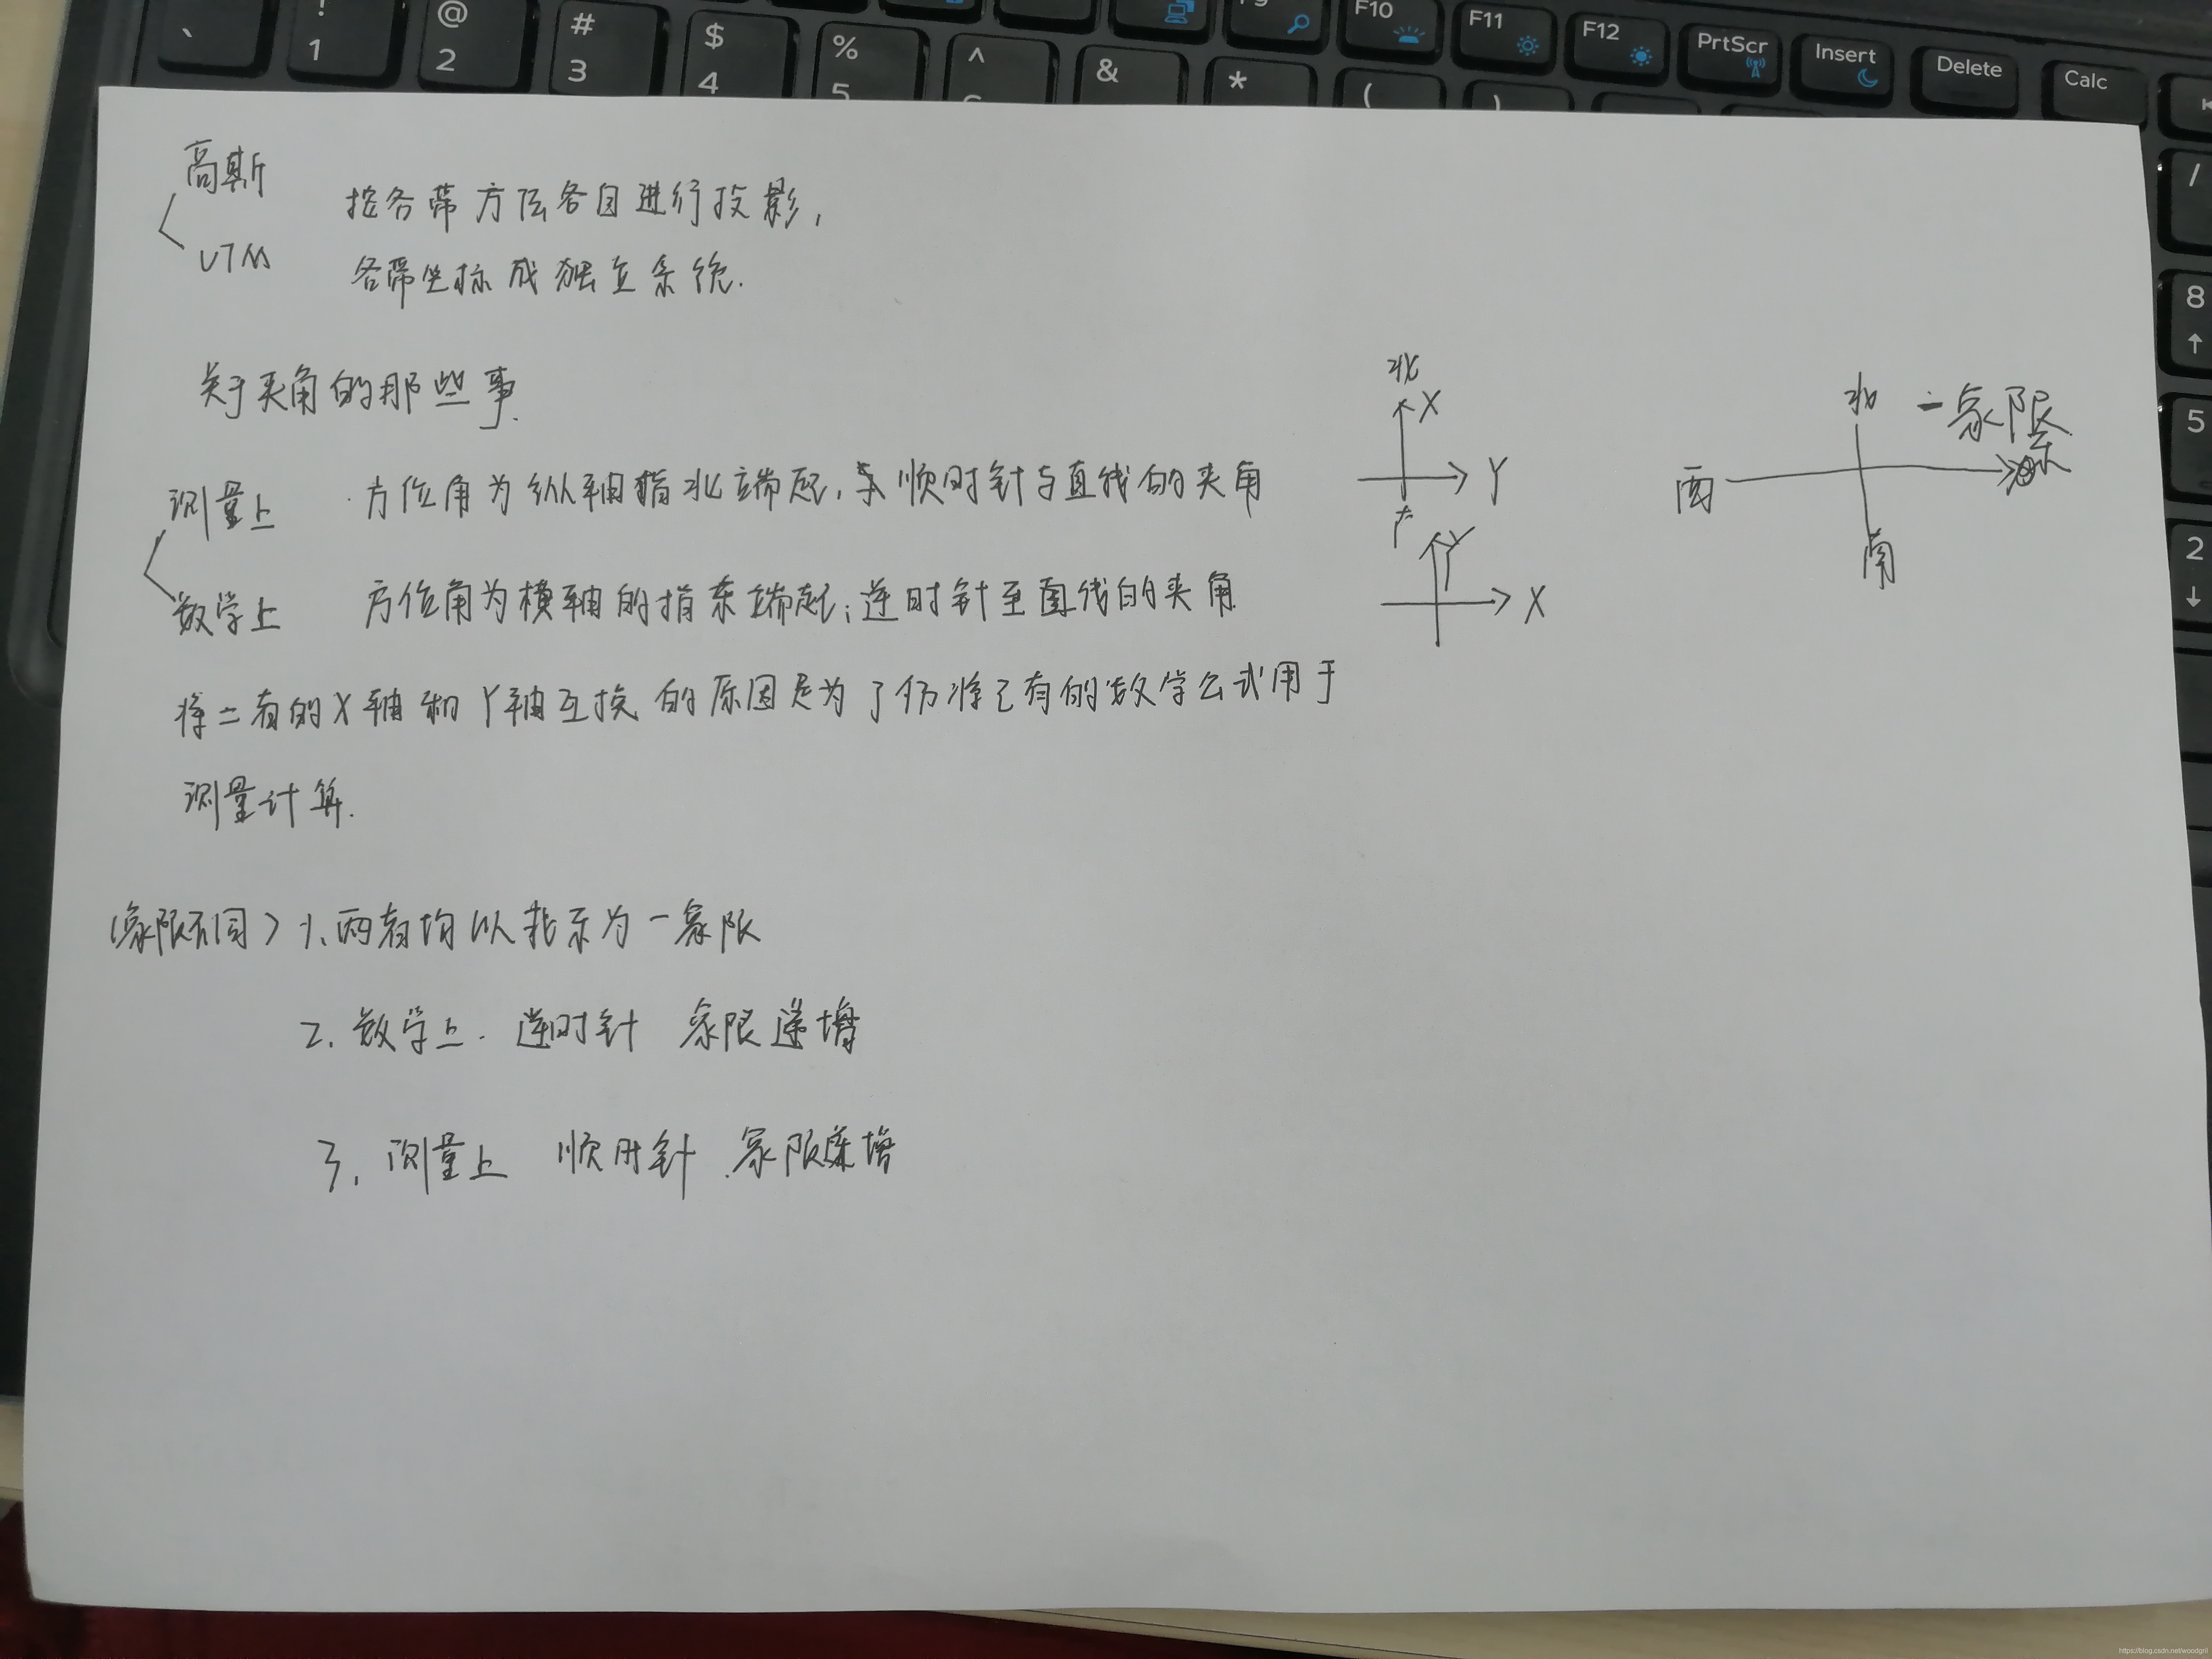 高斯
UTM
按各带方法各自进行投影,
各带坐标成独立系统.
关于夹角的那些事.
测量上 方位角为纵轴指北端起, 顺时针与直线的夹角
数学上 方位角为横轴的指东端起,逆时针至直线的夹角
将二者的X轴和Y轴互换的原因是为了仍将已有的数学公式用于
测量计算.
北
X
Y
Y
X
北
一象限
西
东
南
(象限不同) 1、两者均以北东为一象限
2. 数学上. 逆时针 象限递增
3. 测量上 顺时针 象限递增
`
! 1
@ 2
# 3
$ 4
% 5
^
&
*
(
)
F10
F11
F12
PrtScr
Insert
Delete
Calc
/
8
5
2
https://blog.csdn.net/woodgril